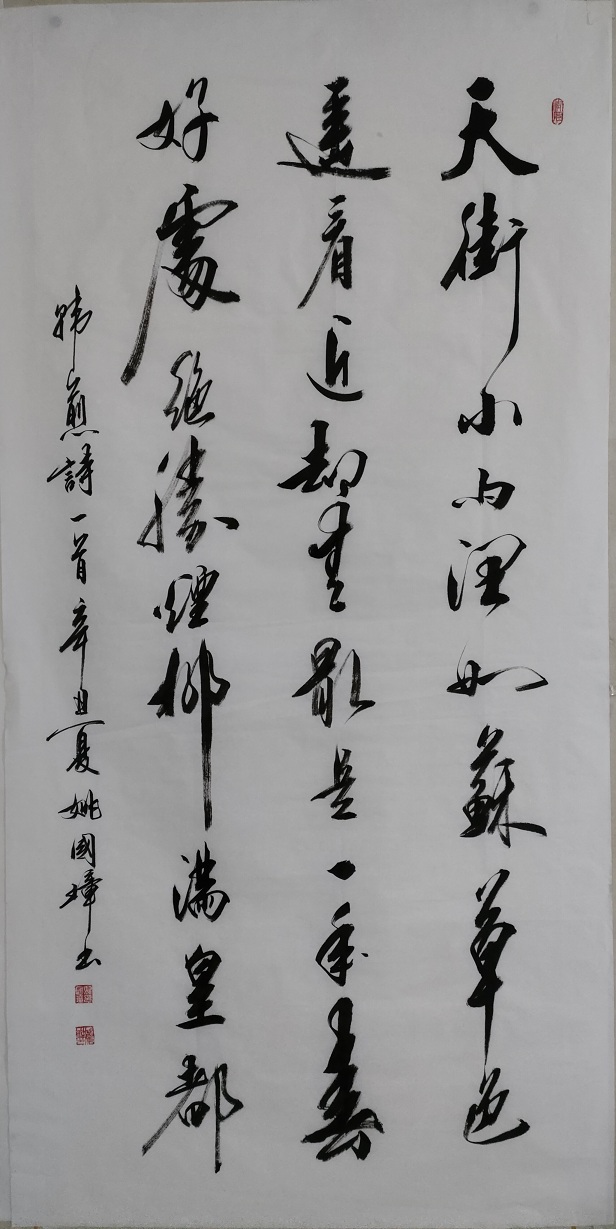 天街小雨潤如蘇草色
遙看近却無最是一年春
好處絕勝煙柳滿皇都
韓愈詩一首辛丑夏姚國璋书